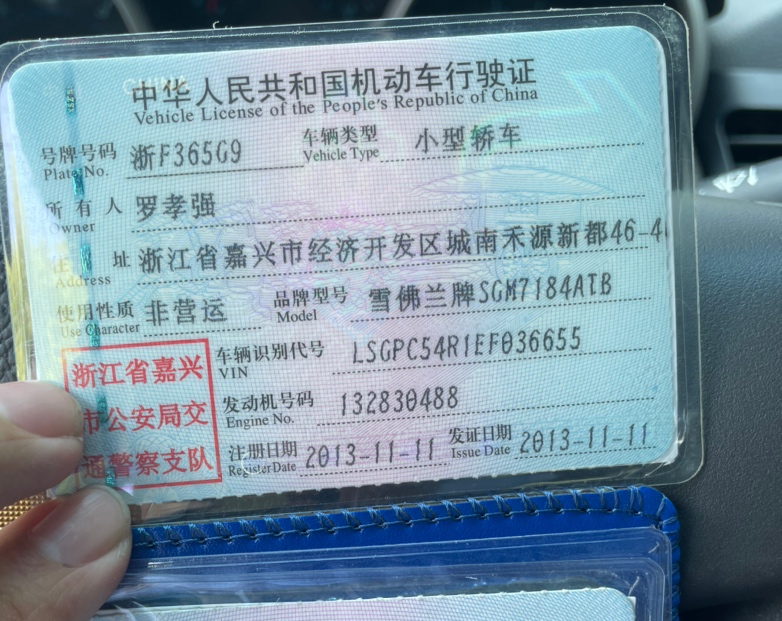 中华人民共和国机动车行驶证
Vehicle License of the People's Republic of China
号牌号码 浙F365G9 车辆类型 小型轿车
Plate No. Vehicle Type
所有人 罗孝强
Owner
住址 浙江省嘉兴市经济开发区城南禾源新都46-4
Address
使用性质 非营运 品牌型号 雪佛兰牌SGM7184ATB
Use Character Model
浙江省嘉兴
市公安局交
通警察支队
车辆识别代号 LSGPC54R1EF036655
VIN
发动机号码 132830488
Engine No.
注册日期 2013-11-11 发证日期 2013-11-11
Register Date Issue Date